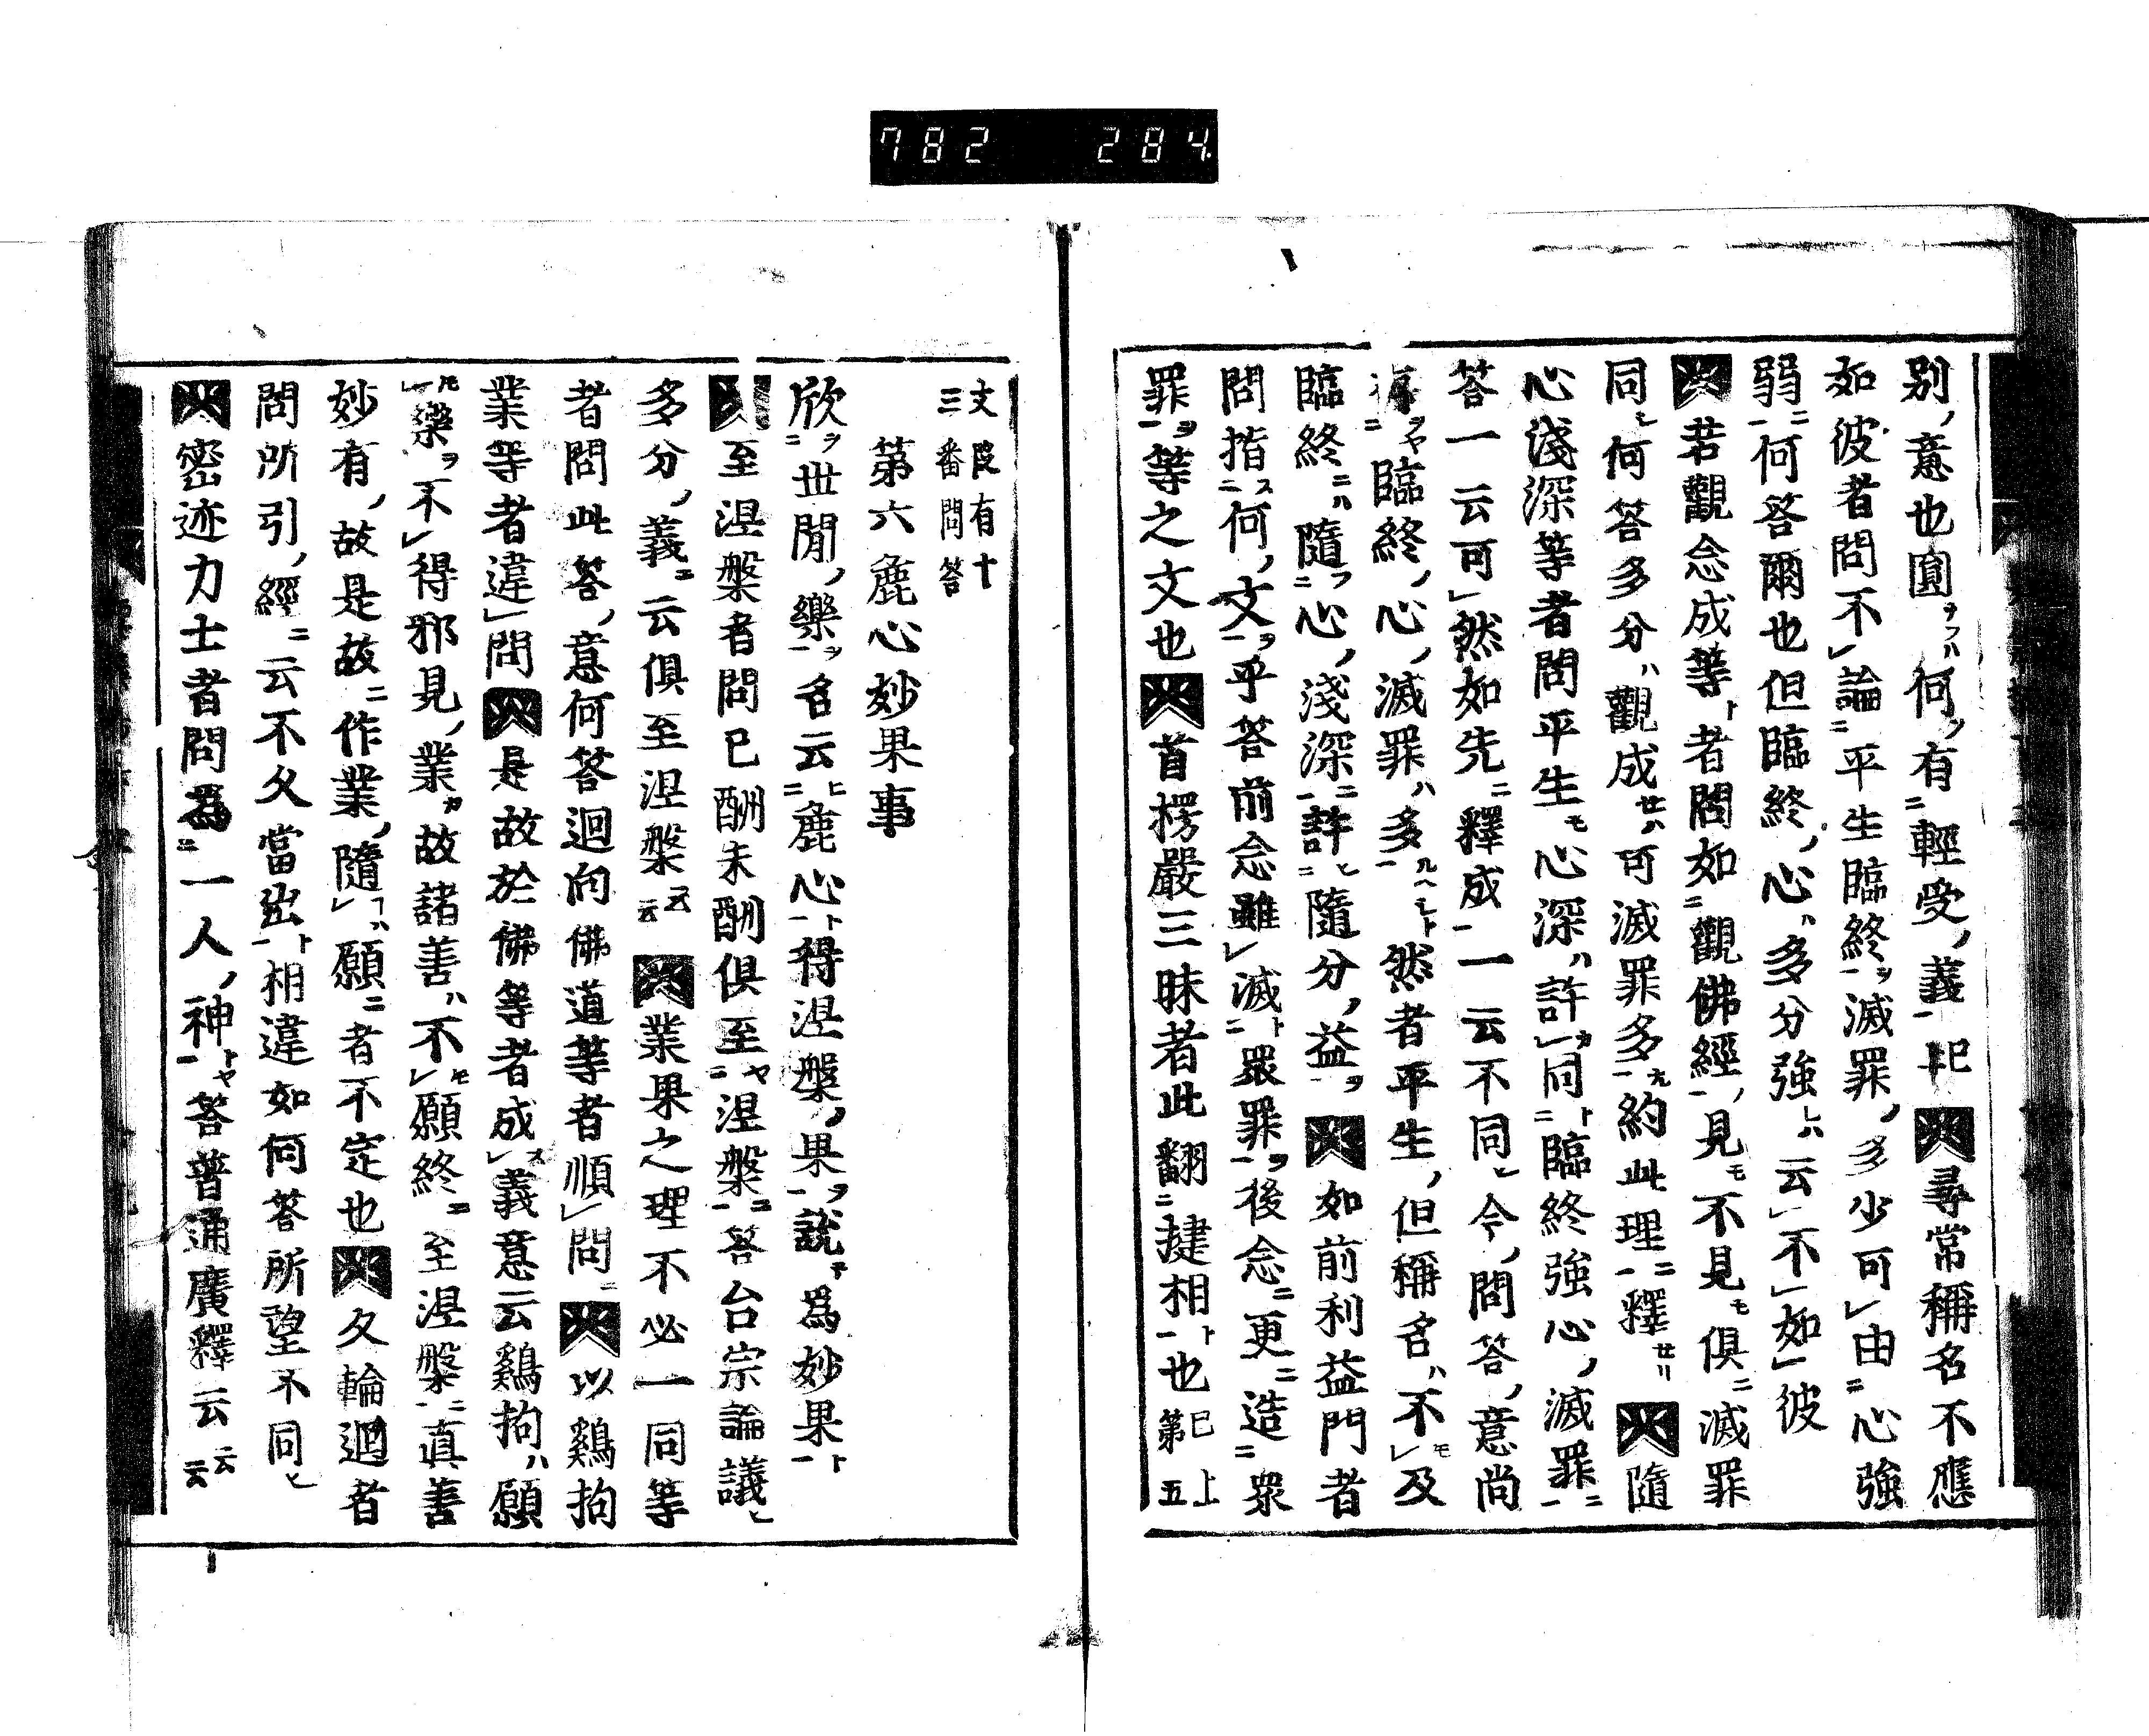 782 284
別意也圓ヲフハ何ソ有ニ輕受ノ義一已上 尋常稱名不應
如彼者問不レ論ニ平生臨終ヲ滅罪ノ多少可レ由ニ心強
弱ニ一何答爾也但臨終ノ心ハ多分強ヒハ云レ不レ如レ彼
若觀念成等ト者問如ニ觀佛經ノ一見モ不見モ俱ニ滅罪
同ヒ何答多分ハ觀成セハ可滅罪多一約此理ニ一釋セリ 隨
心淺深等者問平生モ心深ハ許レ同ニト臨終強心ノ滅罪一ニ
答一云可レ然如先ニ釋成一一云不同ヒ今ノ問答ノ意尚
臨終ノ心ノ滅罪ハ多一然者平生ノ但稱名ハ不レモ及
臨終ニハ隨ニフ心ノ淺深ニ一許ニヒ隨分ノ益ヲ 如前利益門者
問指ニス何ノ文一ヲ乎答前念雖レ滅ニト眾罪一ヲ後念ニ更ニ造ニ眾
罪一ヲ等之文也 首楞嚴三昧者此翻ニ揵相一ト也已上第五
文段有十
三番問答
第六麁心妙果事
欣ニヲ世間ノ樂一ヲ名云ニヒ麁心一ト得涅槃ノ果一ヲ說ヲ爲妙果一ト
至涅槃者問已酬未酬俱至ニヤ涅槃一ニ答台宗論議ヒ
多分ノ義ニ云俱至涅槃云云 業果之理不必一同等
者問此答ノ意何答迴向佛道等者順レ問ニ 以鷄拘
業等者違レ問 是故於佛等者成レス義意云鷄拘ハ願
樂ヲ不レ得邪見ノ業カ故諸善ハ不レモ願終ニ至涅槃一ニ真善
妙有ノ故是故ニ作業ノ隨レハ願ニ者不定也 久輪迴者
問所引ノ經ニ云不久當出一ト相違如何答所望不同ヒ
密迹力士者問爲ニ一人ノ神一トヤ答普通廣釋云云云